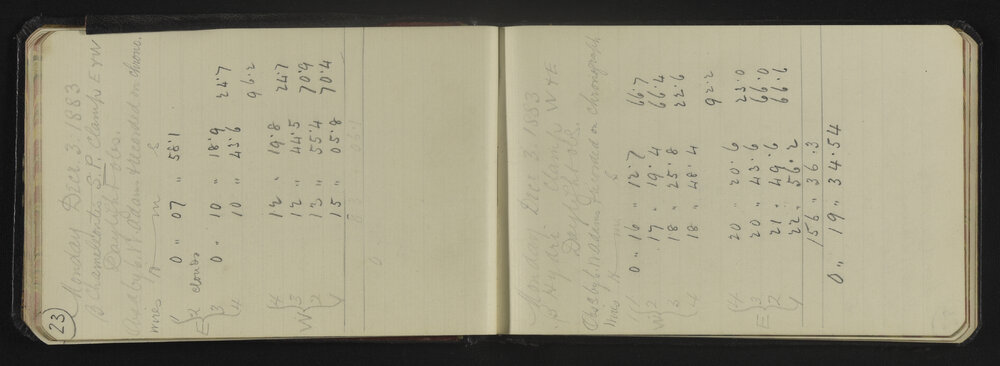 23
Monday Decr. 3. 1883
β Chamaeleontis S.P. Clamps E & W
Daylight Obs.
Obsd by & recorded on chrono.
wires h m s
E 2 0 " 07 " 56.1
clouds
3 0 " 10 " 18.9 24.7
4 10 " 43.6
96.2
4 12 " 19.8 24.7
W 3 12 " 44.5 70.9
2 13 " 55.4 70.4
1 15 " 05.8
0
Monday Decr 3. 1883
β Hydri Clamp W & E
Daylight Obs.
Obsd by & recorded on chronograph
wires h m s
1 0 " 16 " 12.7 66.7
W 2 17 " 19.4 66.4
3 18 " 25.8 22.6
4 18 " 48.4
92.2
4 20 " 20.6 23.0
E 3 20 " 43.6 66.0
2 21 " 49.6 66.6
1 22 " 56.2
156 " 36.3
0 " 19 " 34.54